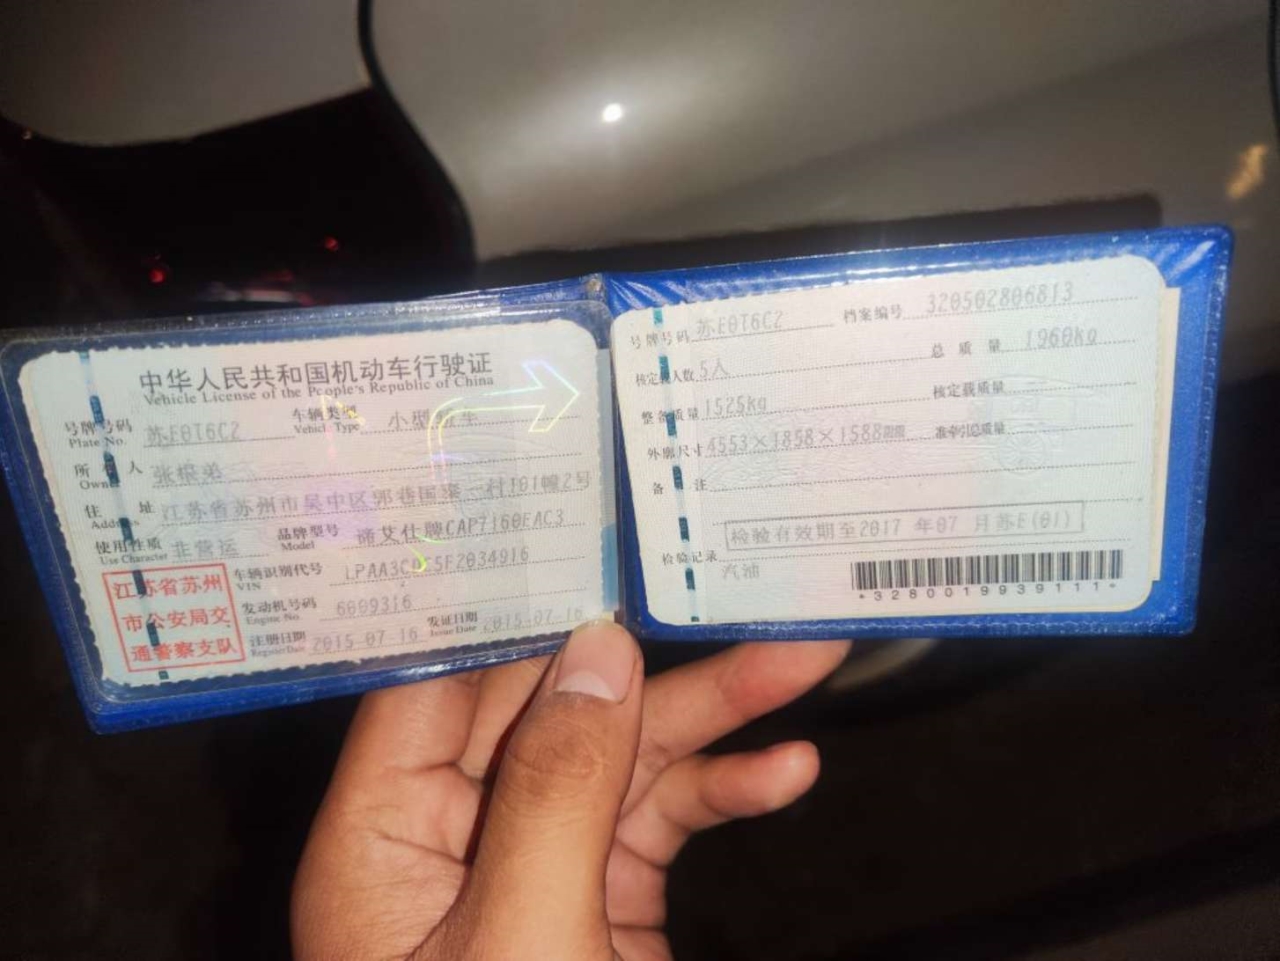 中华人民共和国机动车行驶证
Vehicle License of the People's Republic of China
号牌号码 苏E0T6C2 车辆类型 小型
Plate No. Vehicle Type
所 人 张根弟
Owner
住 址 江苏省苏州市吴中区郭巷国泰一村101幢2号
Address
使用性质 非营运 品牌型号 诸艾仕牌CAP7160EAC3
Use Character Model
车辆识别代号
VIN
发动机号码 6009316
Engine No.
注册日期 2015-07-16 发证日期 2015-07-16
Register Date Issue Date
江苏省苏州
市公安局交
通警察支队
号牌号码 苏E0T6C2 档案编号 320502806813
核定载人数 5人 总质量 1960kg
整备质量 1525kg 核定载质量
外廓尺寸 4553×1858×1588mm 准牵引总质量
备 注
检验有效期至2017 年07 月苏E(01)
检验记录
汽油
*3280019939111*